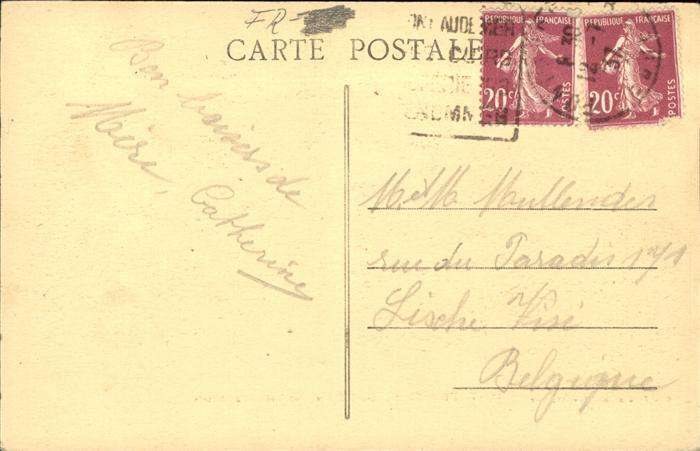 FR-
CARTE POSTALE
PONT AUDEMER
REPUBLIQUE FRANÇAISE
20c
POSTES
REPUBLIQUE FRANÇAISE
20c
POSTES
Bon baisers de
Mère, Catherine
M et M Mullender
rue du Paradis 171
Lische Visé
Belgique